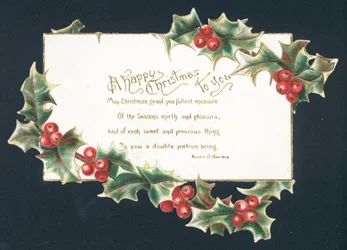 A Happy Christmas To You
May Christmas grant you fullest measure
Of the Season's mirth and pleasure,
And of each sweet and precious thing
To you a double portion bring.